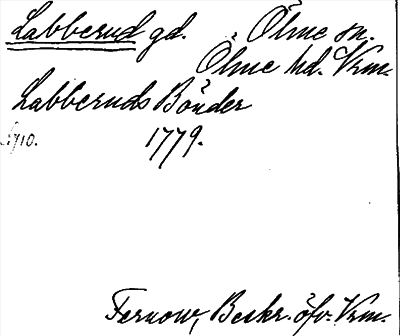 Labberud gd. Ölme sn.
Ölme hd. Vrm.
Labberuds Bönder
S. 710. 1779.
Fernow, Beskr. öfv. Vrm.